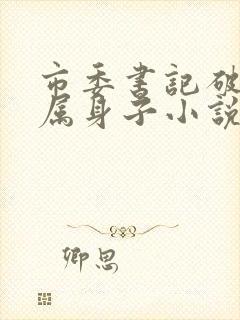 市委書記破
属身子小說
卿思